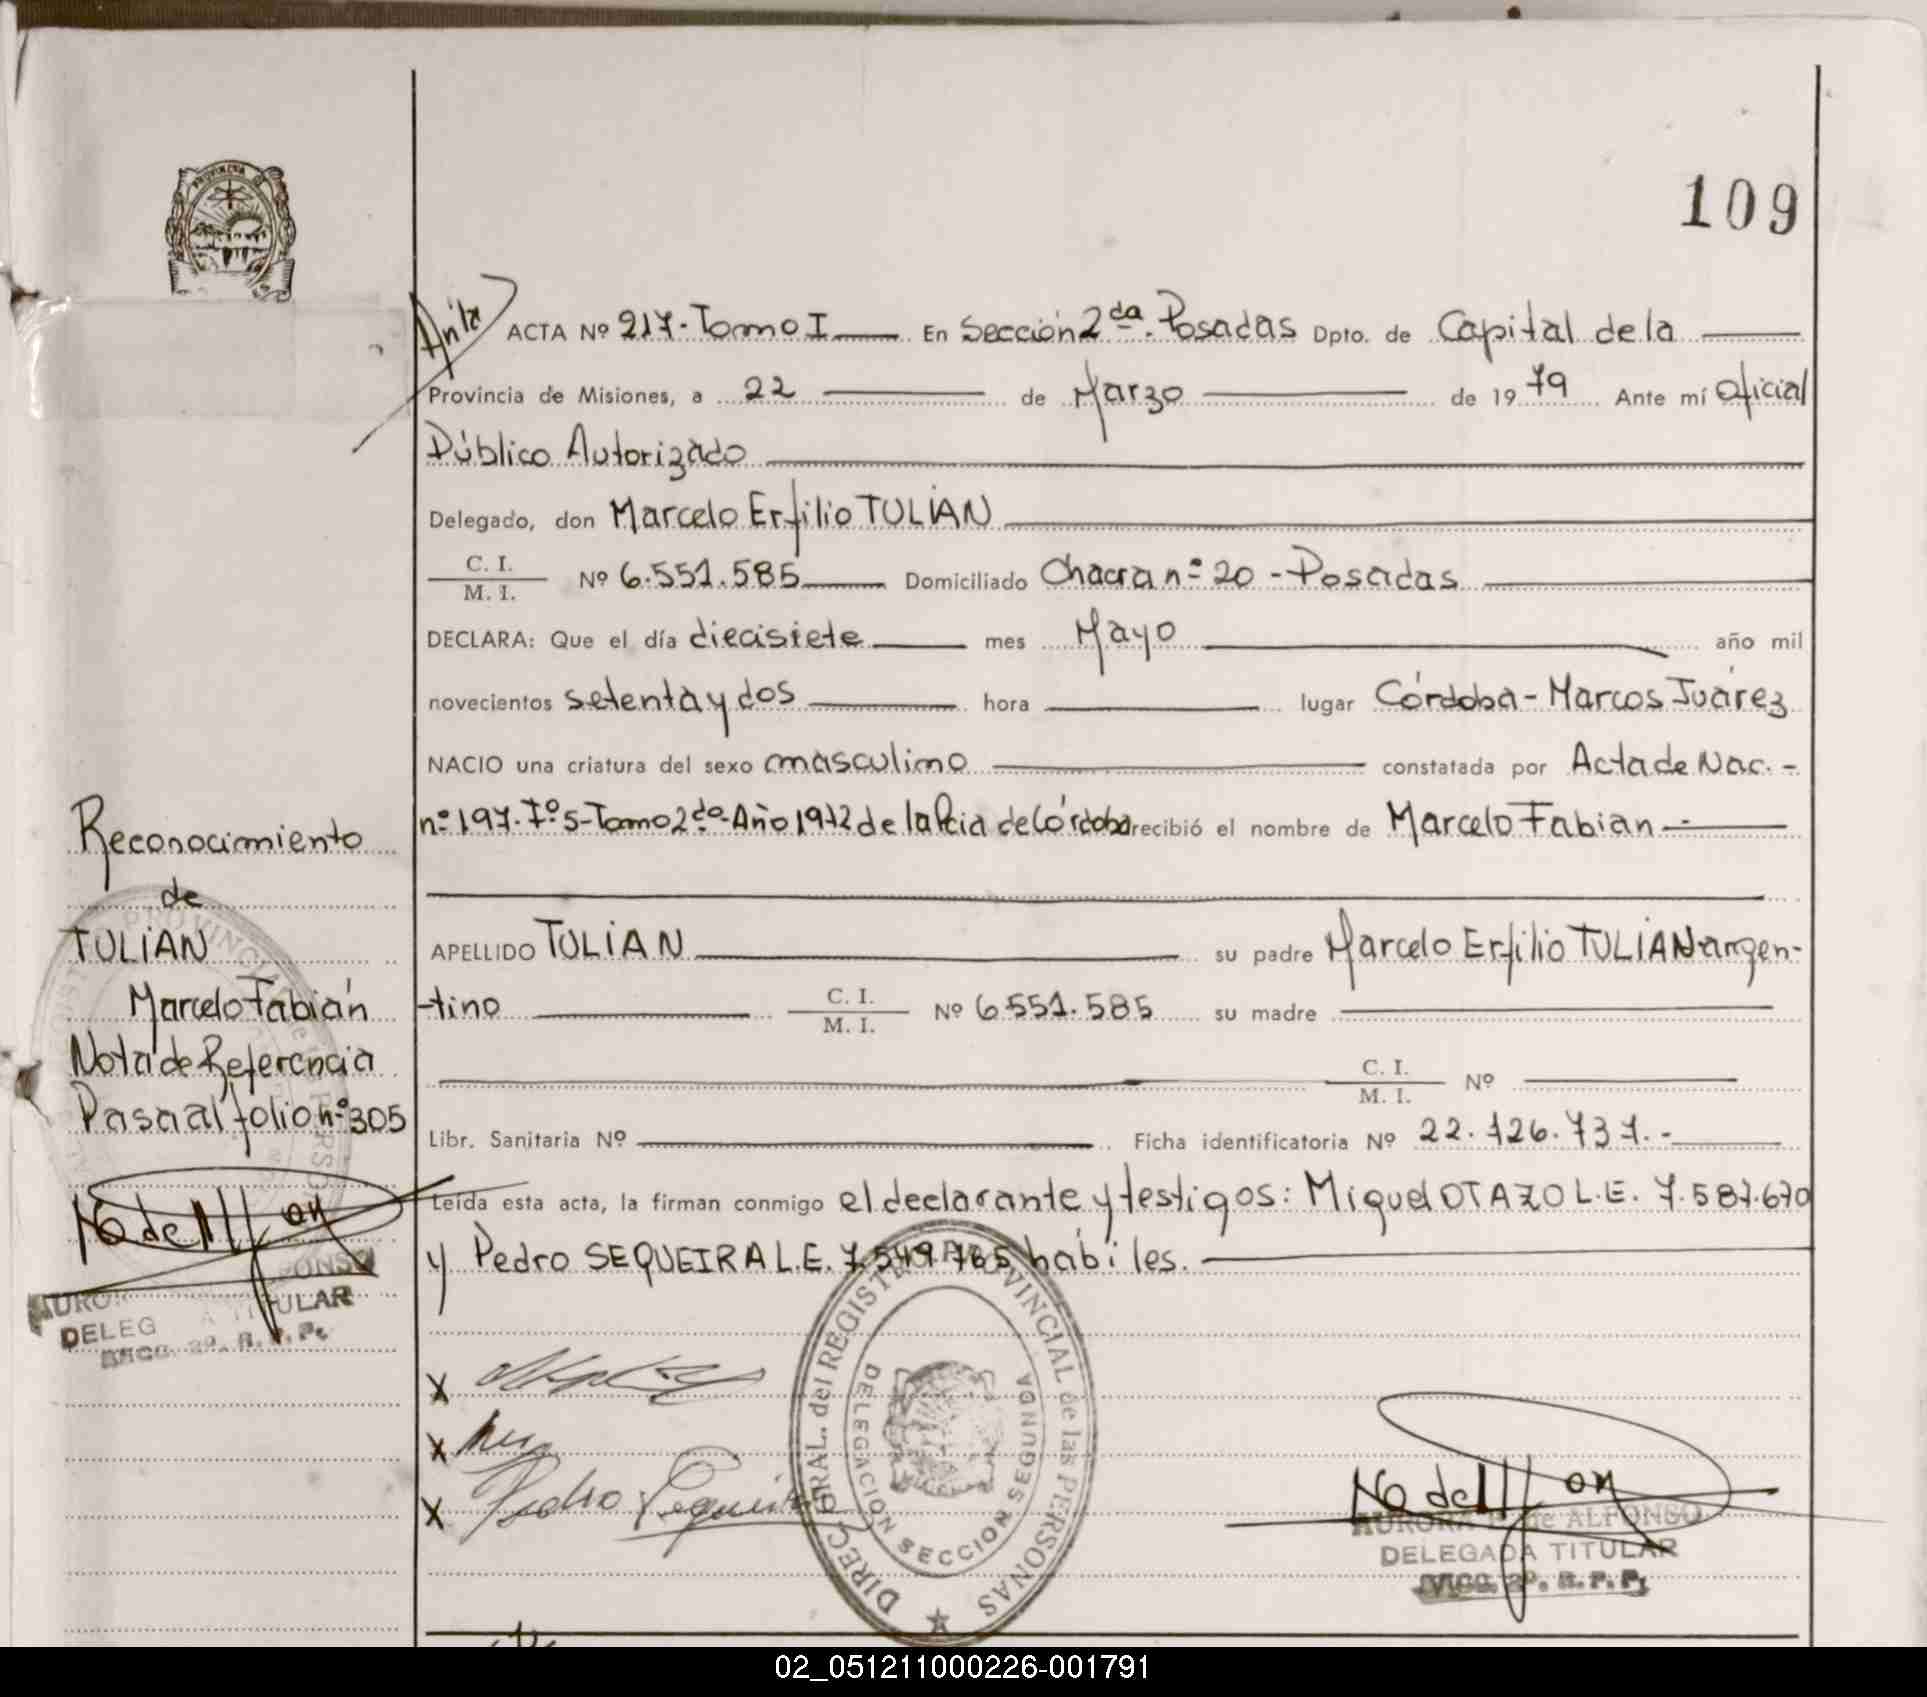 109
ACTA Nº 217 - Tomo I En Sección 2da. Posadas Dpto. de Capital de la
Provincia de Misiones, a 22 de Marzo de 1979 Ante mí Oficial
Público Autorizado
Delegado, don Marcelo Erfilio TULIAN
C. I.
M. I. Nº 6.551.585 Domiciliado Chacra nº 20 - Posadas
DECLARA: Que el día diecisiete mes Mayo año mil
novecientos setenta y dos hora lugar Córdoba - Marcos Juárez
NACIO una criatura del sexo masculino constatada por Acta de Nac. -
nº 197 - Fº 5 - Tomo 2do - Año 1972 de la Pcia de Córdoba recibió el nombre de Marcelo Fabian
APELLIDO TULIAN su padre Marcelo Erfilio TULIAN argen-
-tino C. I.
M. I. Nº 6.551.585 su madre
C. I.
M. I. Nº
Libr. Sanitaria Nº Ficha identificatoria Nº 22.126.737.-
Leída esta acta, la firman conmigo el declarante y testigos: Miguel OTAZO L.E. 7.587.670
y Pedro SEQUEIRA L.E. 7.549.765 habiles.
X
X
X Pedro Sequeira
DIREC. GRAL. del REGISTRO PROVINCIAL de las PERSONAS
DELEGACION SECCION SEGUNDA
AURORA de ALFONSO
DELEGADA TITULAR
SECC. 2º. R. P. P.
Reconocimiento
de
TULIAN
Marcelo Fabián
Nota de Referencia
Pasa al folio nº 305
DELEG A TITULAR
SECC. 2º. R. P. P.
02_051211000226-001791